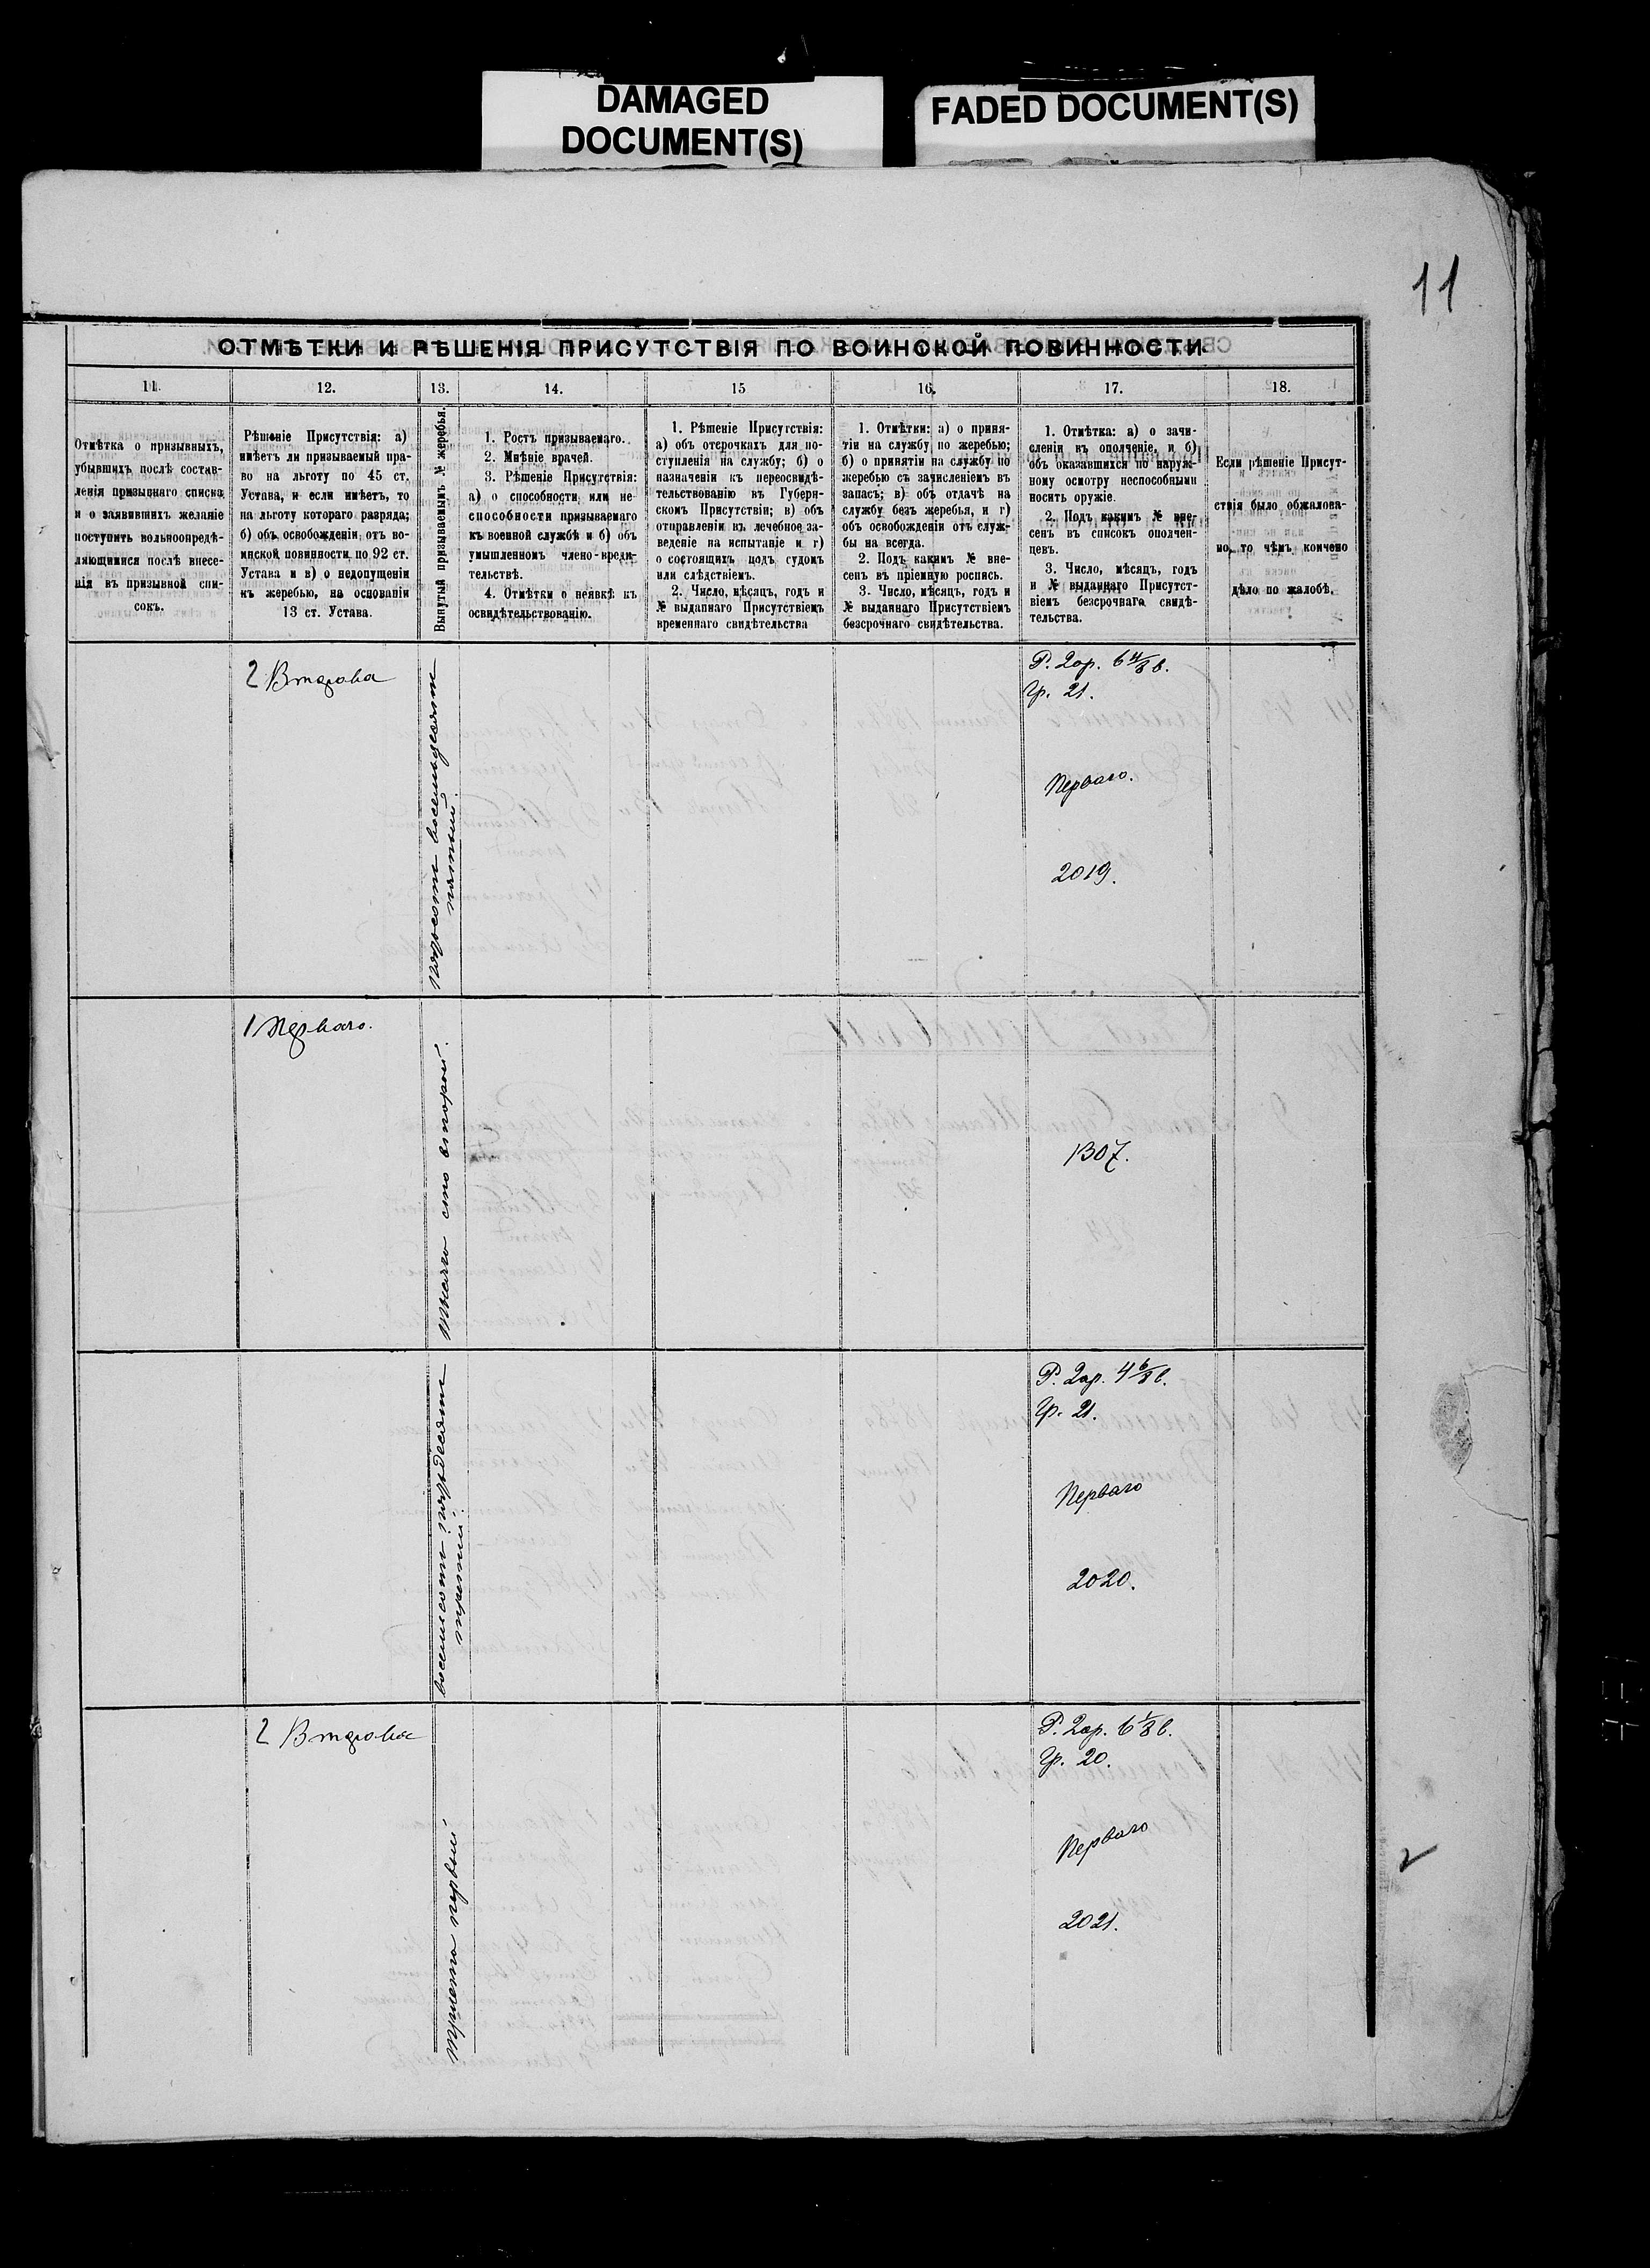 DAMAGED
DOCUMENT(S)
FADED DOCUMENT(S)
11
ОТМѢТКИ И РѢШЕНІЯ ПРИСУТСТВІЯ ПО ВОИНСКОЙ ПОВИННОСТИ.
11.
12.
13.
14.
15
16.
17.
18.
Отмѣтка о призывныхъ,
убывшихъ послѣ состав-
ленія призывнаго списка
и о заявившихъ желаніе
поступить вольноопредѣ-
ляющимися послѣ внесе-
нія въ призывной спи-
сокъ.
Рѣшеніе Присутствія: а)
имѣетъ ли призываемый пра-
во на льготу по 45 ст.
Устава, и если имѣетъ, то
на льготу котораго разряда;
б) объ освобожденіи отъ во-
инской повинности по 92 ст.
Устава и в) о недопущеніи
къ жеребью, на основаніи
13 ст. Устава.
Вынутый призываемымъ № жеребья.
1. Ростъ призываемаго.
2. Мнѣніе врачей.
3. Рѣшеніе Присутствія:
а) о способности или не-
способности призываемаго
къ военной службѣ и б) объ
умышленномъ члено-вреди-
тельствѣ.
4. Отмѣтки о неявкѣ къ
освидѣтельствованію.
1. Рѣшеніе Присутствія:
а) объ отсрочкахъ для по-
ступленія на службу; б) о
назначеніи къ переосвидѣ-
тельствованію въ Губерн-
скомъ Присутствіи; в) объ
отправленіи въ лечебное за-
веденіе на испытаніе и г)
о состоящихъ подъ судомъ
или слѣдствіемъ.
2. Число, мѣсяцъ, годъ и
№ выданнаго Присутствіемъ
временнаго свидѣтельства
1. Отмѣтки: а) о приня-
тіи на службу по жеребью;
б) о принятіи на службу по
жеребью съ зачисленіемъ въ
запасъ; в) объ отдачѣ на
службу безъ жеребья, и г)
объ освобожденіи отъ служ-
бы на всегда.
2. Подъ какимъ № вне-
сенъ въ пріемную роспись.
3. Число, мѣсяцъ, годъ и
№ выданнаго Присутствіемъ
безсрочнаго свидѣтельства.
1. Отмѣтка: а) о зачи-
сленіи въ ополченіе, и б)
объ оказавшихся по наруж-
ному осмотру неспособными
носить оружіе.
2. Подъ какимъ № вне-
сенъ въ списокъ ополчен-
цевъ.
3. Число, мѣсяцъ, годъ
и № выданнаго Присутст-
віемъ безсрочнаго свидѣ-
тельства.
Если рѣшеніе Присут-
ствія было обжалова-
но, то чѣмъ кончено
дѣло по жалобѣ.
2 Втораго
четыреста восемьдесятъ
пятый.
Р. 2 ар. 6 4/8 в.
Гр. 21.
Перваго.
2019.
1 Перваго.
тысяча сто второй.
1307.
восемьсот пятьдесятъ
третій.
Р. 2 ар. 4 6/8 в.
Гр. 21.
Перваго
2020.
2 Втораго
триста первый
Р. 2 ар. 6 1/8 в.
Гр. 20.
Перваго
2021.